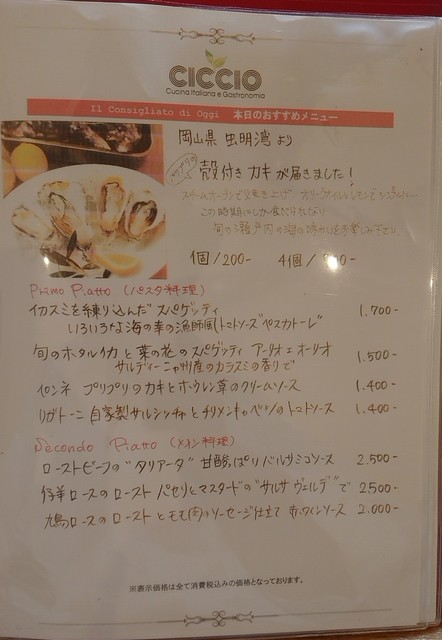 CICCIO
Cucina Italiana e Gastronomia
Il Consigliato di Oggi 本日のおすすめメニュー
岡山県 虫明湾 より
殻付き カキ が届きました!
この時期にしか食べられない
旬の瀬戸内の海の味わいをお楽しみ下さい
1個/200- 4個/
Primo Piatto (パスタ料理)
イカスミを練り込んだ スパゲッティ
いろいろな海の幸の漁師風トマトソース"ペスカトーレ" 1.700-
旬のホタルイカ と 菜の花 の スパゲッティ アーリオ エ オーリオ
サルディーニャ州産のカラスミの香りで 1.500-
プリプリの カキ と ホウレン草 の クリームソース 1.400-
リガトーニ 自家製 サルシッチャ と チリメンキャベツ の トマトソース 1.400-
Secondo Piatto (メイン料理)
ローストビーフ の "タリアータ" 甘酸っぱい バルサミコソース 2.500-
仔羊ロース の ロースト パセリ と マスタード の "サルサ ヴェルデ" で 2500-
鳩ロース の ロースト と モモ肉のソーセージ仕立て 赤ワインソース 2.000-
※表示価格は全て消費税込みの価格となっております。